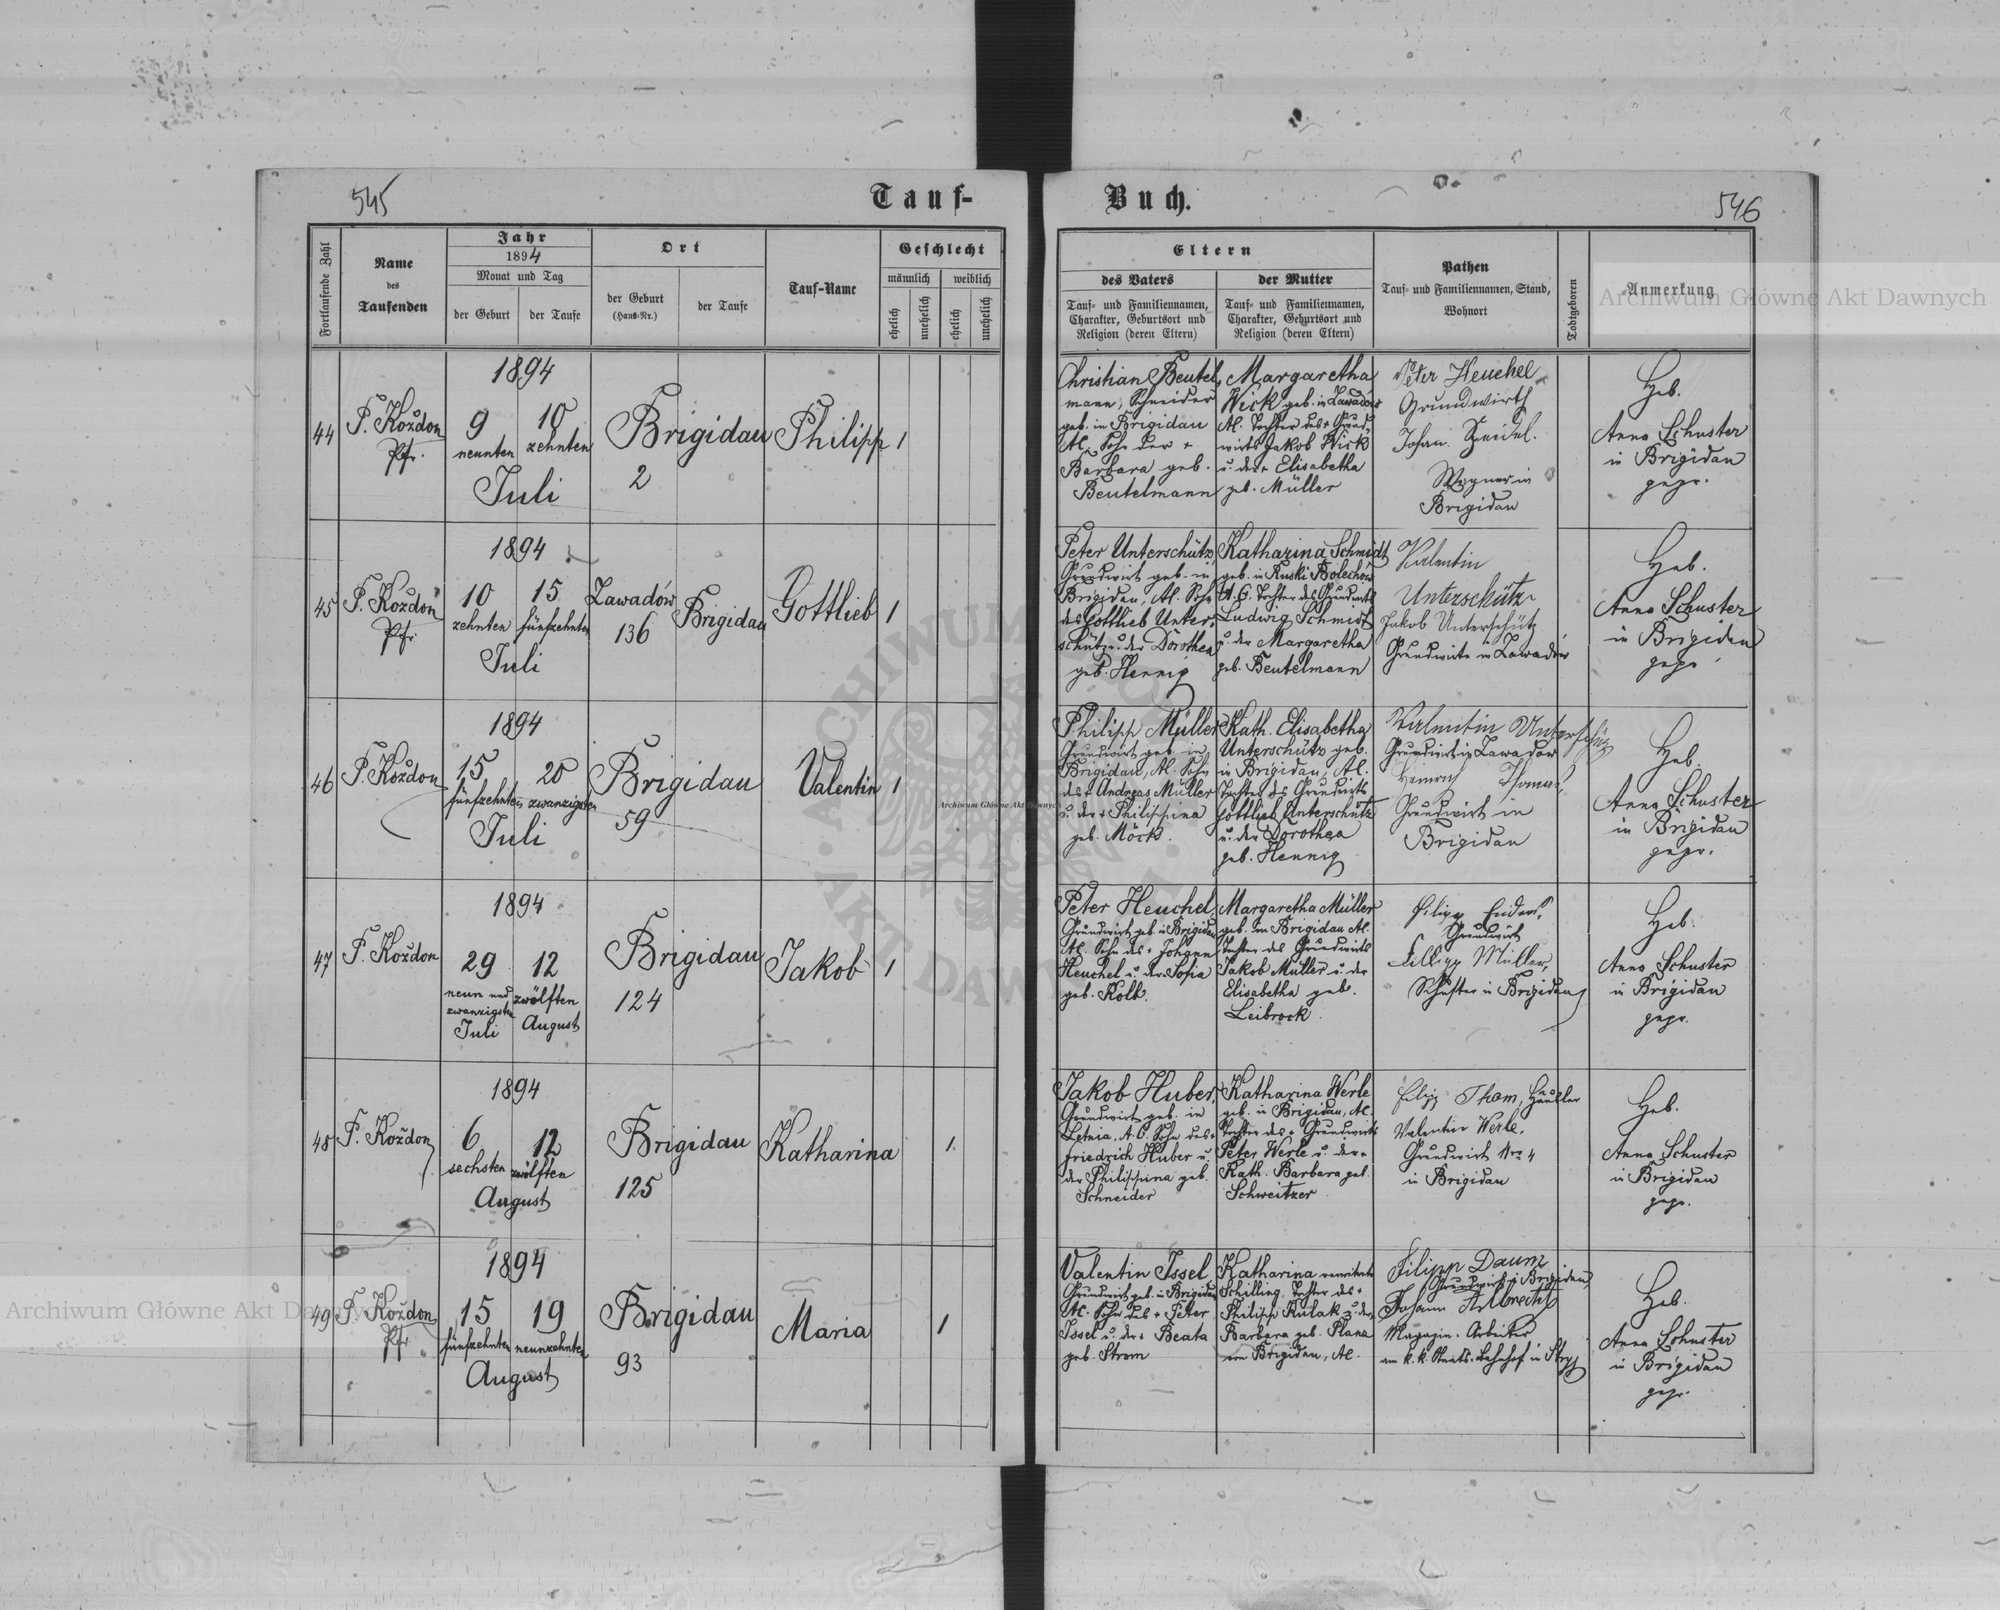 545
Tauf-
Buch.
546
Fortlaufende Zahl
Name
des
Taufenden
Jahr
1894
Monat und Tag
der Geburt
der Taufe
Ort
der Geburt
(Haus-Nr.)
der Taufe
Tauf-Name
Geschlecht
männlich
weiblich
ehelich
unehelich
ehelich
unehelich
Eltern
des Vaters
Tauf- und Familiennamen,
Charakter, Geburtsort und
Religion (deren Eltern)
der Mutter
Tauf- und Familiennamen,
Charakter, Geburtsort und
Religion (deren Eltern)
Pathen
Tauf- und Familiennamen, Stand,
Wohnort
Todtgeboren
Anmerkung
44
F. Koždon
Pfr.
1894
9
neunten
10
zehnten
Juli
Brigidau
2
Philipp
1
Christian Beutel
mann, Schneider
geb. in Brigidau
Al. Sohn der +
Barbara geb.
Beutelmann
Margaretha
Wick geb. in Zawadów
Al. Tochter des + Grund-
wirts Jakob Wick
u. der + Elisabetha
geb. Müller
Peter Heuchel
Grundwirth
Johan. Seidel.
Wagner in
Brigidau
Heb.
Anna Schuster
in Brigidau
gepr.
45
F. Koždon
Pfr.
1894
10
zehnten
15
fünfzehnten
Juli
Zawadów
136
Brigidau
Gottlieb
1
Peter Unterschütz
Grundwirt geb. in
Brigidau, Al. Sohn
des Gottlieb Unter-
schütz u. der Dorothea
geb. Hennig
Katharina Schmidt
geb. in Ruski Bolechów
A. C. Tochter des Grundwirts
Ludwig Schmidt
u. der Margaretha
geb. Beutelmann
Valentin
Unterschütz
Jakob Unterschütz
Grundwirte in Zawadów
Heb.
Anna Schuster
in Brigidau
gepr.
46
F. Koždon
1894
15
fünfzehnten
20
zwanzigsten
Juli
Brigidau
59
Valentin
1
Philipp Müller
Grundwirt geb. in
Brigidau, Al. Sohn
des + Andreas Müller
u. der + Philippina
geb. Möck.
Kath. Elisabetha
Unterschütz geb.
in Brigidau, Al.
Tochter des Grundwirts
Gottlieb Unterschütz
u. der Dorothea
geb. Hennig
Valentin Unterschütz
Grundwirt in Zawadow
Heinrich Thomas
Grundwirt in
Brigidau
Heb.
Anna Schuster
in Brigidau
gepr.
47
F. Koždon
1894
29
neun und
zwanzigsten
Juli
12
zwölften
August
Brigidau
124
Jakob
1
Peter Heuchel,
Grundwirt geb. in Brigidau
Al. Sohn des + Johann
Heuchel u. der Sofia
geb. Kolb.
Margaretha Müller
geb. in Brigidau Al.
Tochter des Grundwirts
Jakob Müller u. der
Elisabetha geb.
Leibrock.
Filipp Enders,
Grundwirt
Fillipp Müller,
Schuster in Brigidau
Heb.
Anna Schuster
in Brigidau
gepr.
48
F. Koždon
1894
6
sechsten
12
zwölften
August
Brigidau
125
Katharina
1
Jakob Huber,
Grundwirt geb. in
Letnia, A. C. Sohn des +
Friedrich Huber u.
der Philippina geb.
Schneider
Katharina Werle
geb. in Brigidau, Al.
Tochter des + Grundwirts
Peter Werle u. der +
Kath. Barbara geb.
Schweitzer
Filipp Thom, Häusler
Valentin Werle,
Grundwirt Nro 4
in Brigidau
Heb.
Anna Schuster
in Brigidau
gepr.
49
F. Koždon
Pfr.
1894
15
fünfzehnten
19
neunzehnten
August
Brigidau
93
Maria
1
Valentin Issel
Grundwirt geb. in Brigidau
Al. Sohn des + Peter
Issel u. der + Beata
geb. Strom
Katharina verwitwete
Schilling, Tochter des +
Philipp Kulak u. der
Barbara geb. Plana
Brigidau, Al.
Filipp Daum
Grundwirt in Brigidau,
Johann Albrecht
Magazin-Arbeiter
am k. k. Staats-Bahnhof in Stryj
Heb.
Anna Schuster
in Brigidau
gepr.
Archiwum Główne Akt Dawnych
Archiwum Główne Akt Dawnych
Archiwum Główne Akt Dawnych